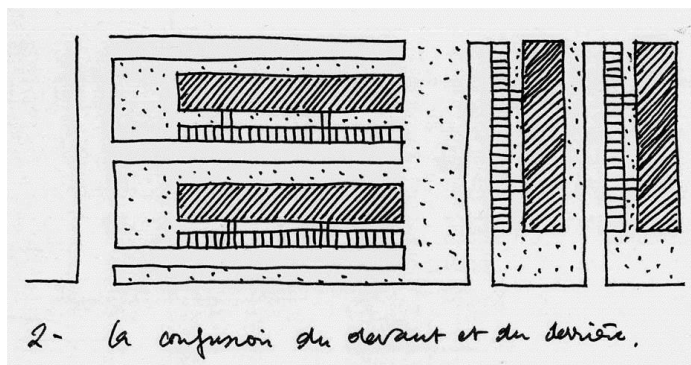 2- la confusion du devant et du derrière.